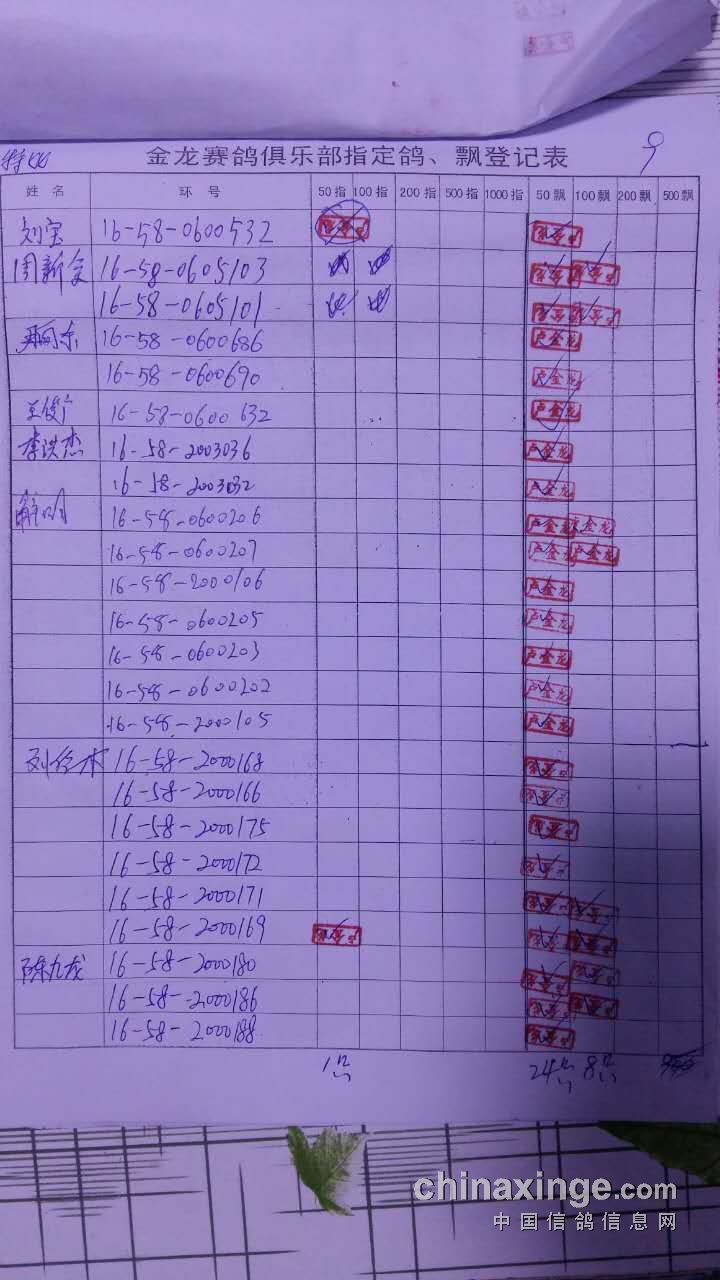 金龙赛鸽俱乐部指定鸽、飘登记表
姓名 环号 50指 100指 200指 500指 1000指 50飘 100飘 200飘 500飘
刘宝 16-58-0600532
周新 16-58-0605103
16-58-0605101
16-58-0600686 卢金龙
16-58-0600690 卢金龙
16-58-0600632 卢金龙
李洪杰 16-58-2003036 卢金龙
16-58-2003032 卢金龙
解明 16-58-0600206 卢金龙 金龙
16-58-0600207 卢金龙 卢金龙
16-58-2000106 卢金龙
16-58-0600205 卢金龙
16-58-0600203 卢金龙
16-58-0600202 卢金龙
16-58-2000105 卢金龙
16-58-2000168
16-58-2000166
16-58-2000175
16-58-2000172
16-58-2000171
16-58-2000169
陈九龙 16-58-2000180
16-58-2000186
16-58-2000188
1 24 8
chinaxinge.com
中国信鸽信息网